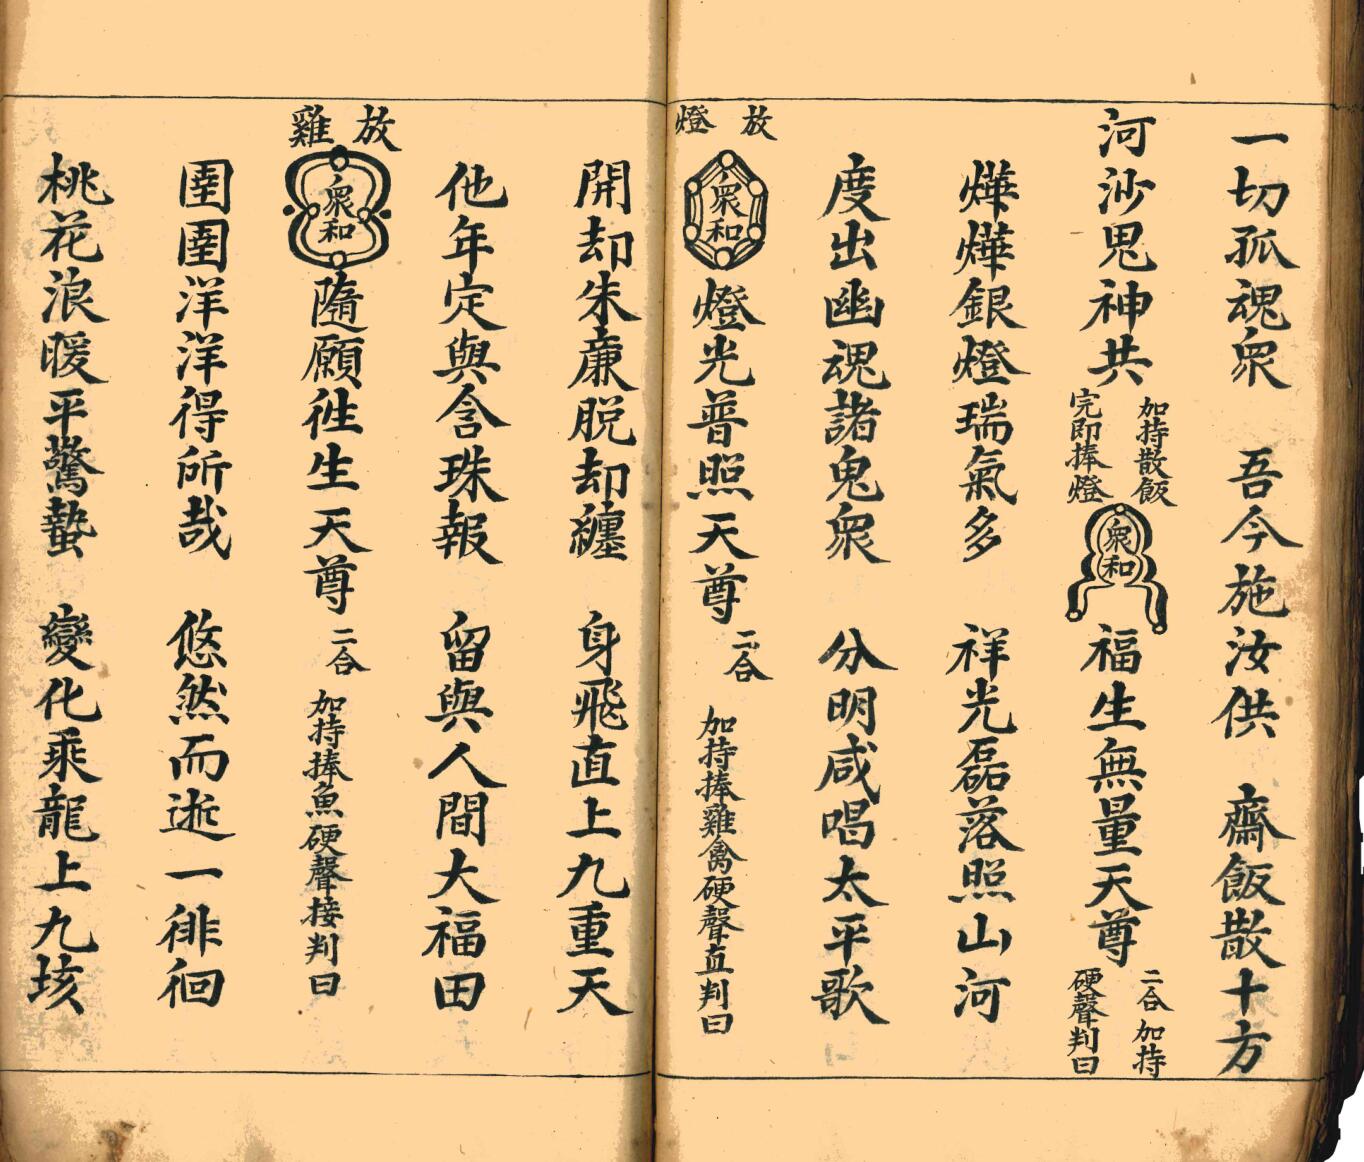 一切孤魂衆　吾今施汝供　齋飯散十方
河沙鬼神共
加持散飯
完即捧燈
衆和
福生無量天尊
二合　加持
硬聲判曰
燁燁銀燈瑞氣多　祥光磊落照山河
度出幽魂諸鬼衆　分明咸唱太平歌
放燈
衆和
燈光普照天尊
二合
加持捧雞禽硬聲直判曰
開却朱廉脱却纏　身飛直上九重天
他年定與含珠報　留與人間大福田
放雞
衆和
隨願徃生天尊
二合
加持捧魚硬聲接判曰
圉圉洋洋得所哉　悠然而逝一徘徊
桃花浪暖平驚蟄　變化乘龍上九垓